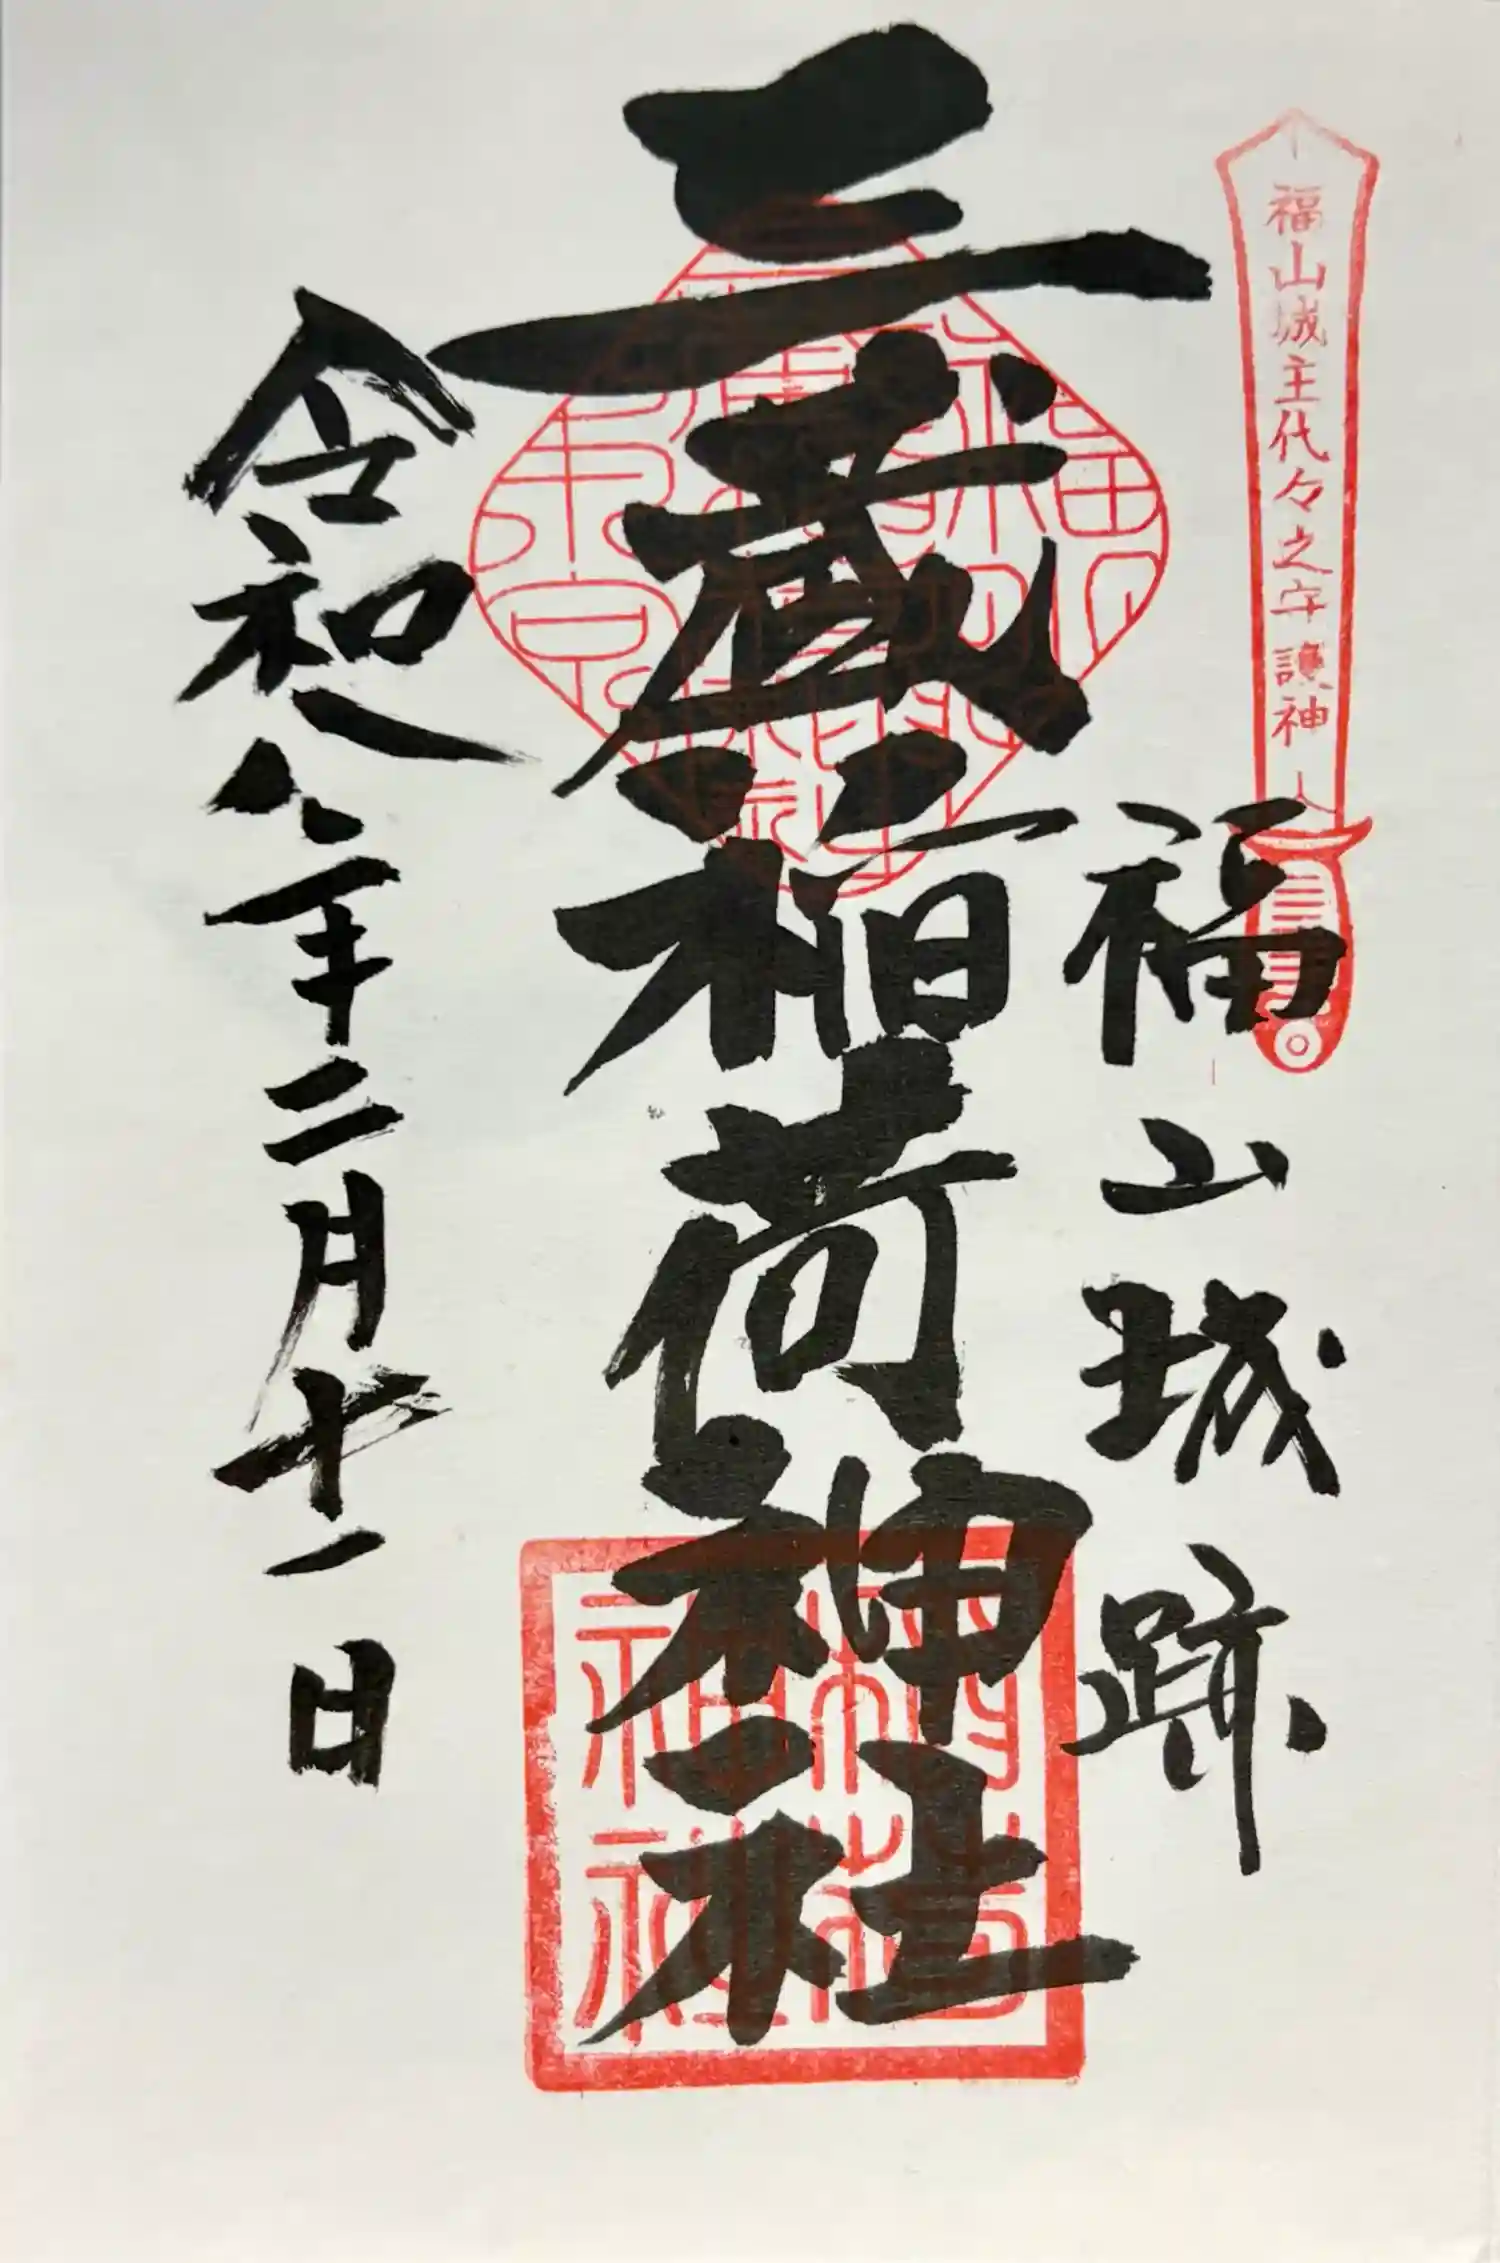 福山城主代々之守護神
福山城跡
三蔵稲荷神社
稲荷神社
令和八年二月十一日